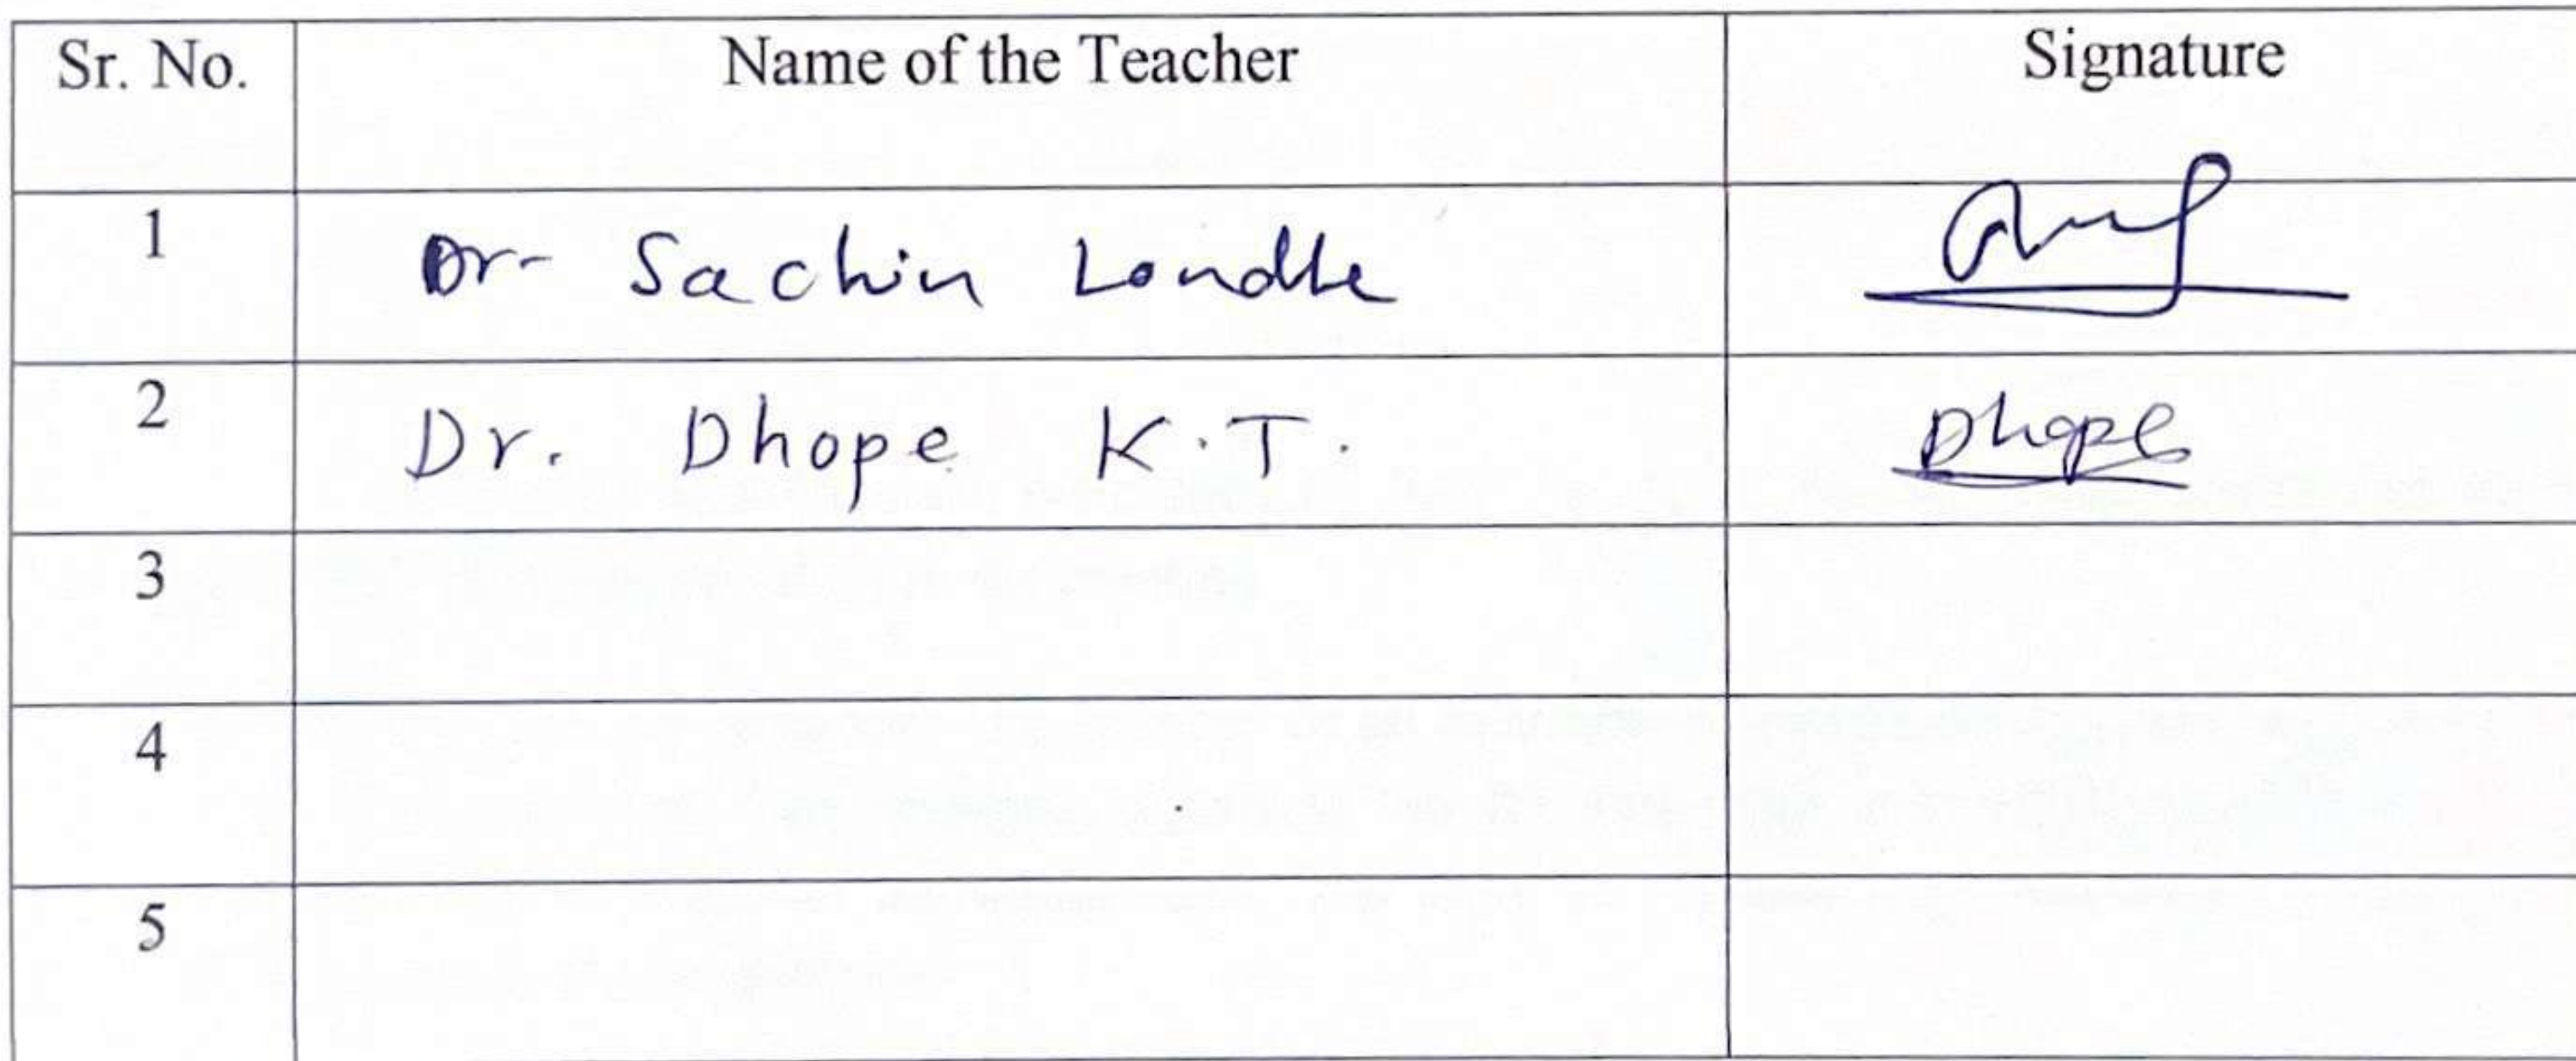 Sr. No. Name of the Teacher Signature
1 Dr- Sachin Londhe
2 Dr. Dhope K.T. Dhope
3
4
5